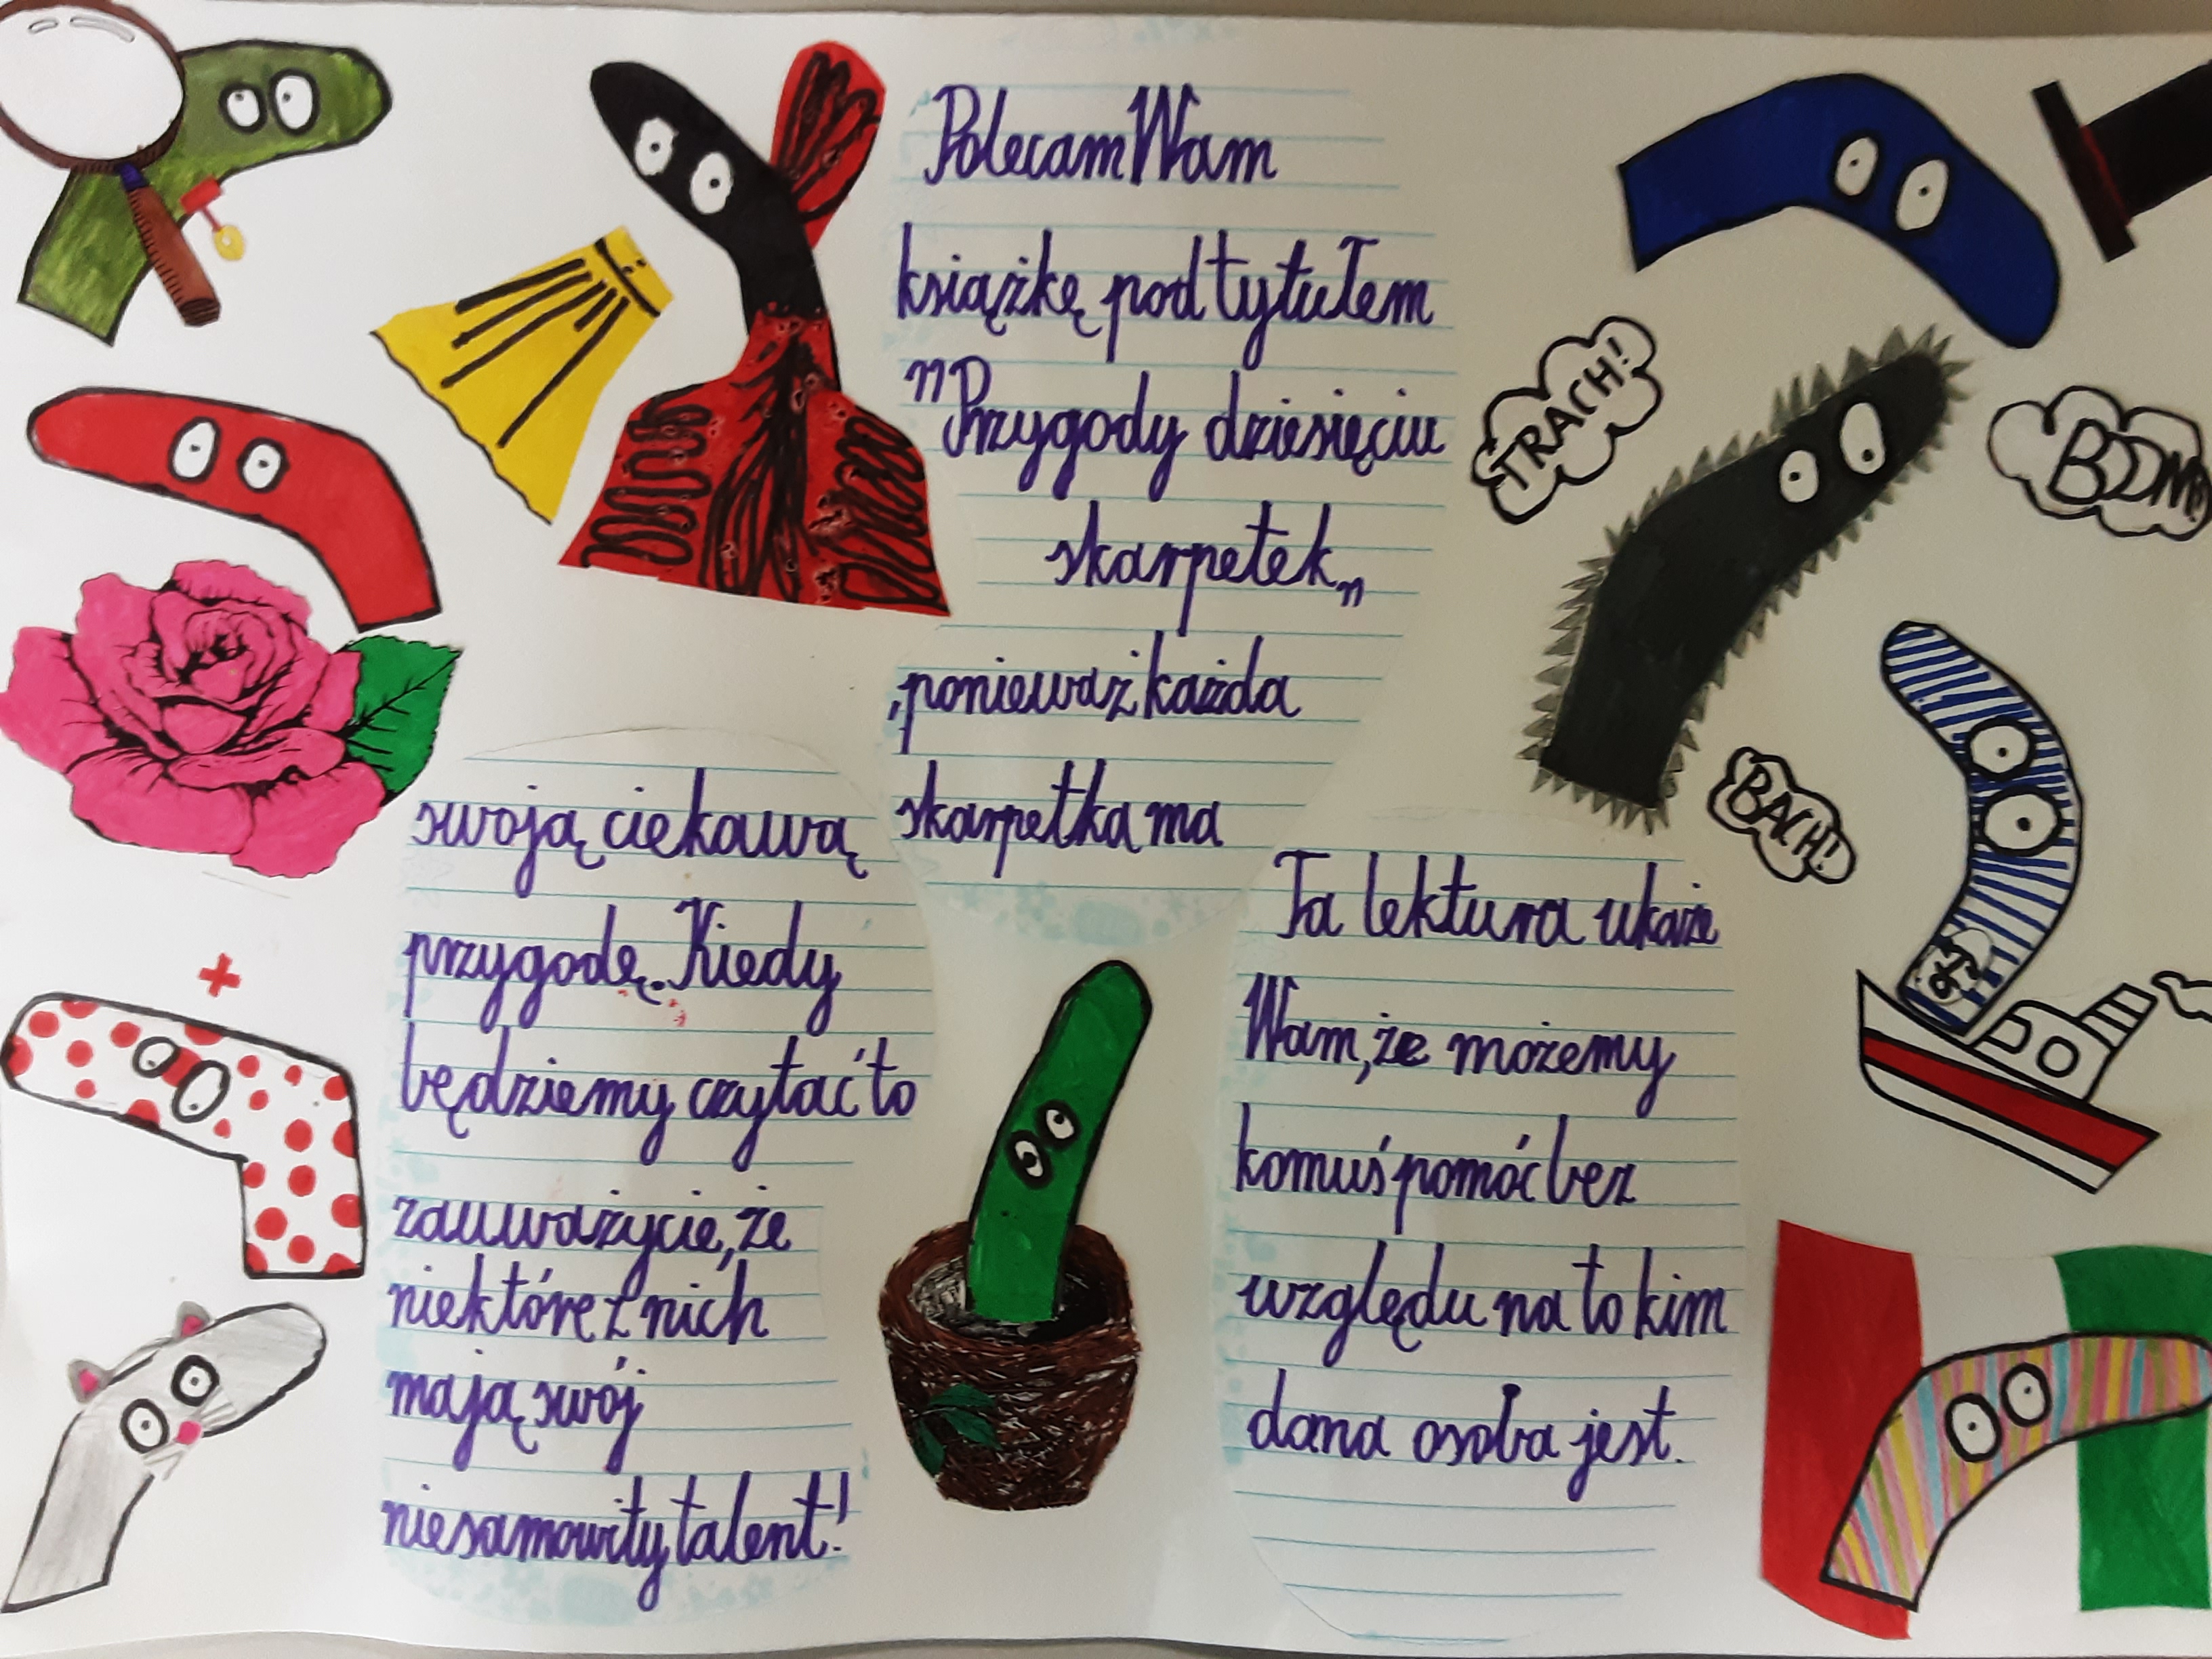 Polecam Wam
książkę pod tytułem
"Przygody dziesięciu
skarpetek"
,ponieważ każda
skarpetka ma
swoją ciekawą
przygodę. Kiedy
będziemy czytać to
zauważycie, że
niektóre z nich
mają swój
niesamowity talent!
Ta lektura ukaże
Wam, że możemy
komuś pomóc bez
względu na to kim
dana osoba jest.
TRACH!
BOOM!
BACH!